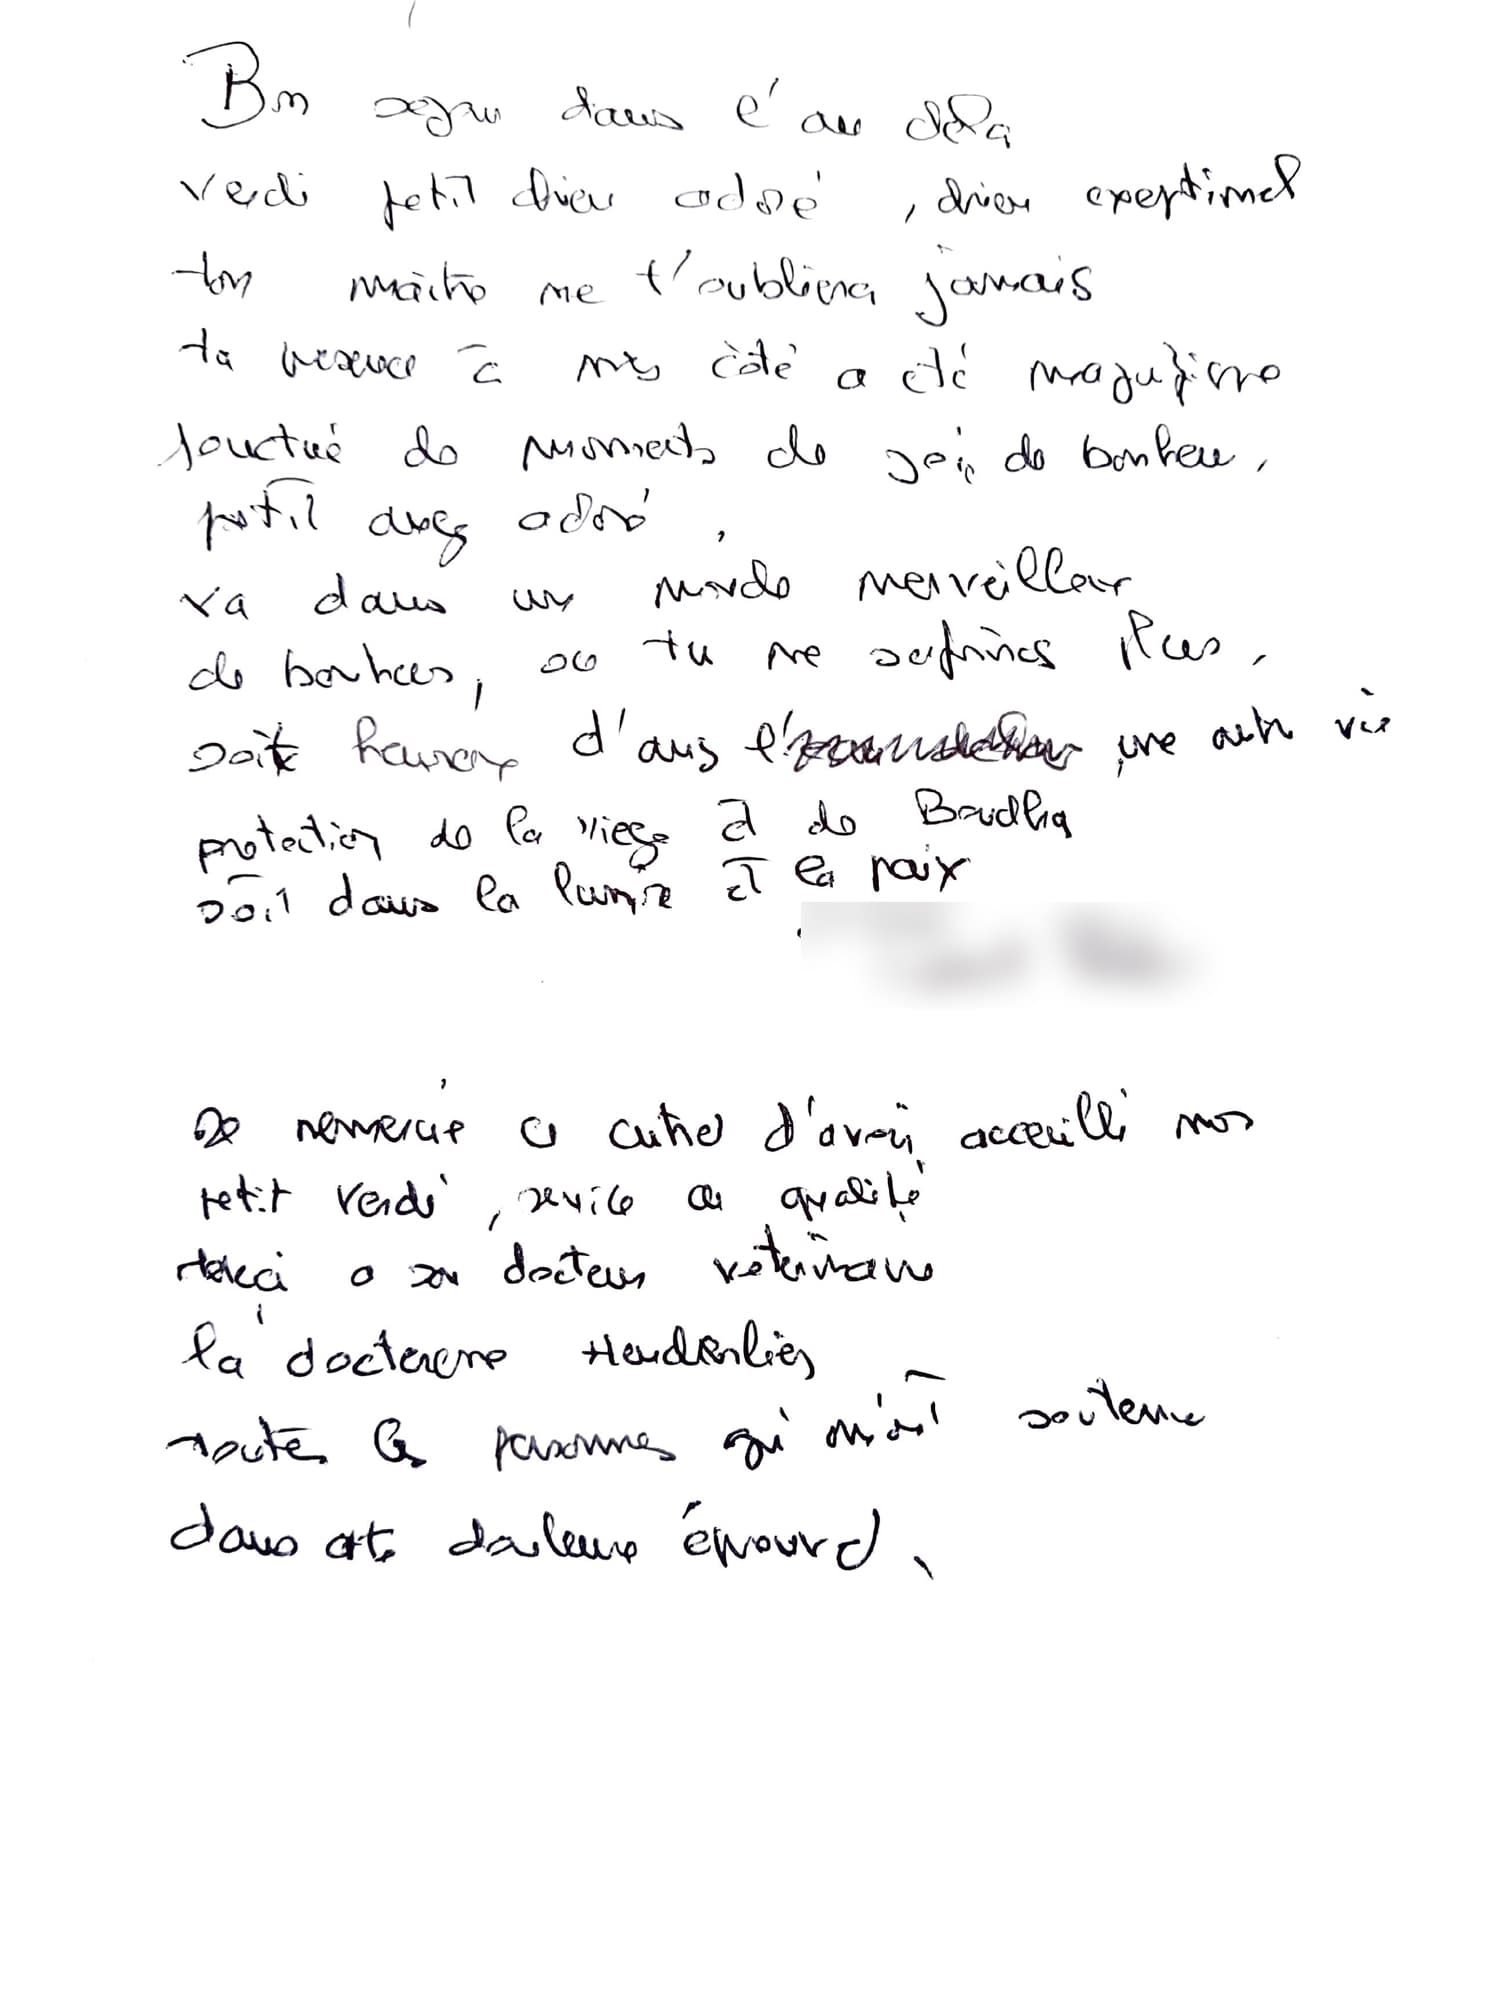 Bon sejour dans l'au dela
Verdi petit chien adoré, chien exeptionel
ton maitre ne t'oubliera jamais
ta presence à mes côté a été magnifique
ponctué de moments de joie de bonheur,
petit ange adoré,
va dans un monde merveilleux
de bonheur, ou tu ne soufriras plus,
soit heureux d'ans l' une autre vie
protection de la vierge et de Boudha
soit dans la lumière et la paix
Je remercie ce d'avoir accueilli nos
petit Verdi, service de qualité
Merci a son docteur véterinaire
la docteure
toutes les personnes qui m'ont soutenue
dans cette douleure